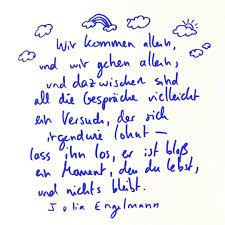 Wir kommen allein,
und wir gehen allein,
und dazwischen sind
all die Gespräche vielleicht
ein Versuch, der sich
irgendwie lohnt –
lass ihn los, er ist bloß
ein Moment, den du lebst,
und nichts bleibt.
Julia Engelmann